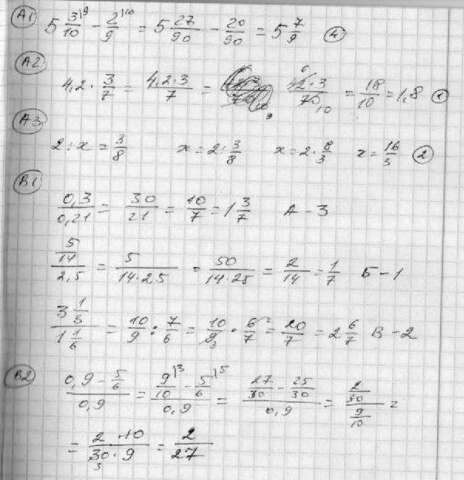 А1
5 3/10 - 2/9 = 5 27/90 - 20/90 = 5 7/90 ④
А2
4,2 · 3/7 = 4,2·3/7 = 42·3/70 = 18/10 = 1,8
А3
2 : x = 3/8 x = 2 : 3/8 x = 2 · 8/3 x = 16/3 ②
В1
0,3/0,21 = 30/21 = 10/7 = 1 3/7 А - 3
5/14 / 2,5 = 5/14·2,5 = 50/14·25 = 2/14 = 1/7 Б - 1
3 1/3 / 1 1/6 = 10/9 : 7/6 = 10/9 · 6/7 = 20/7 = 2 6/7 В - 2
В2
0,9 - 5/6 / 0,9 = 9/10 - 5/6 / 0,9 = 27/30 - 25/30 / 0,9 = 2/30 / 9/10 =
= 2·10/30·9 = 2/27